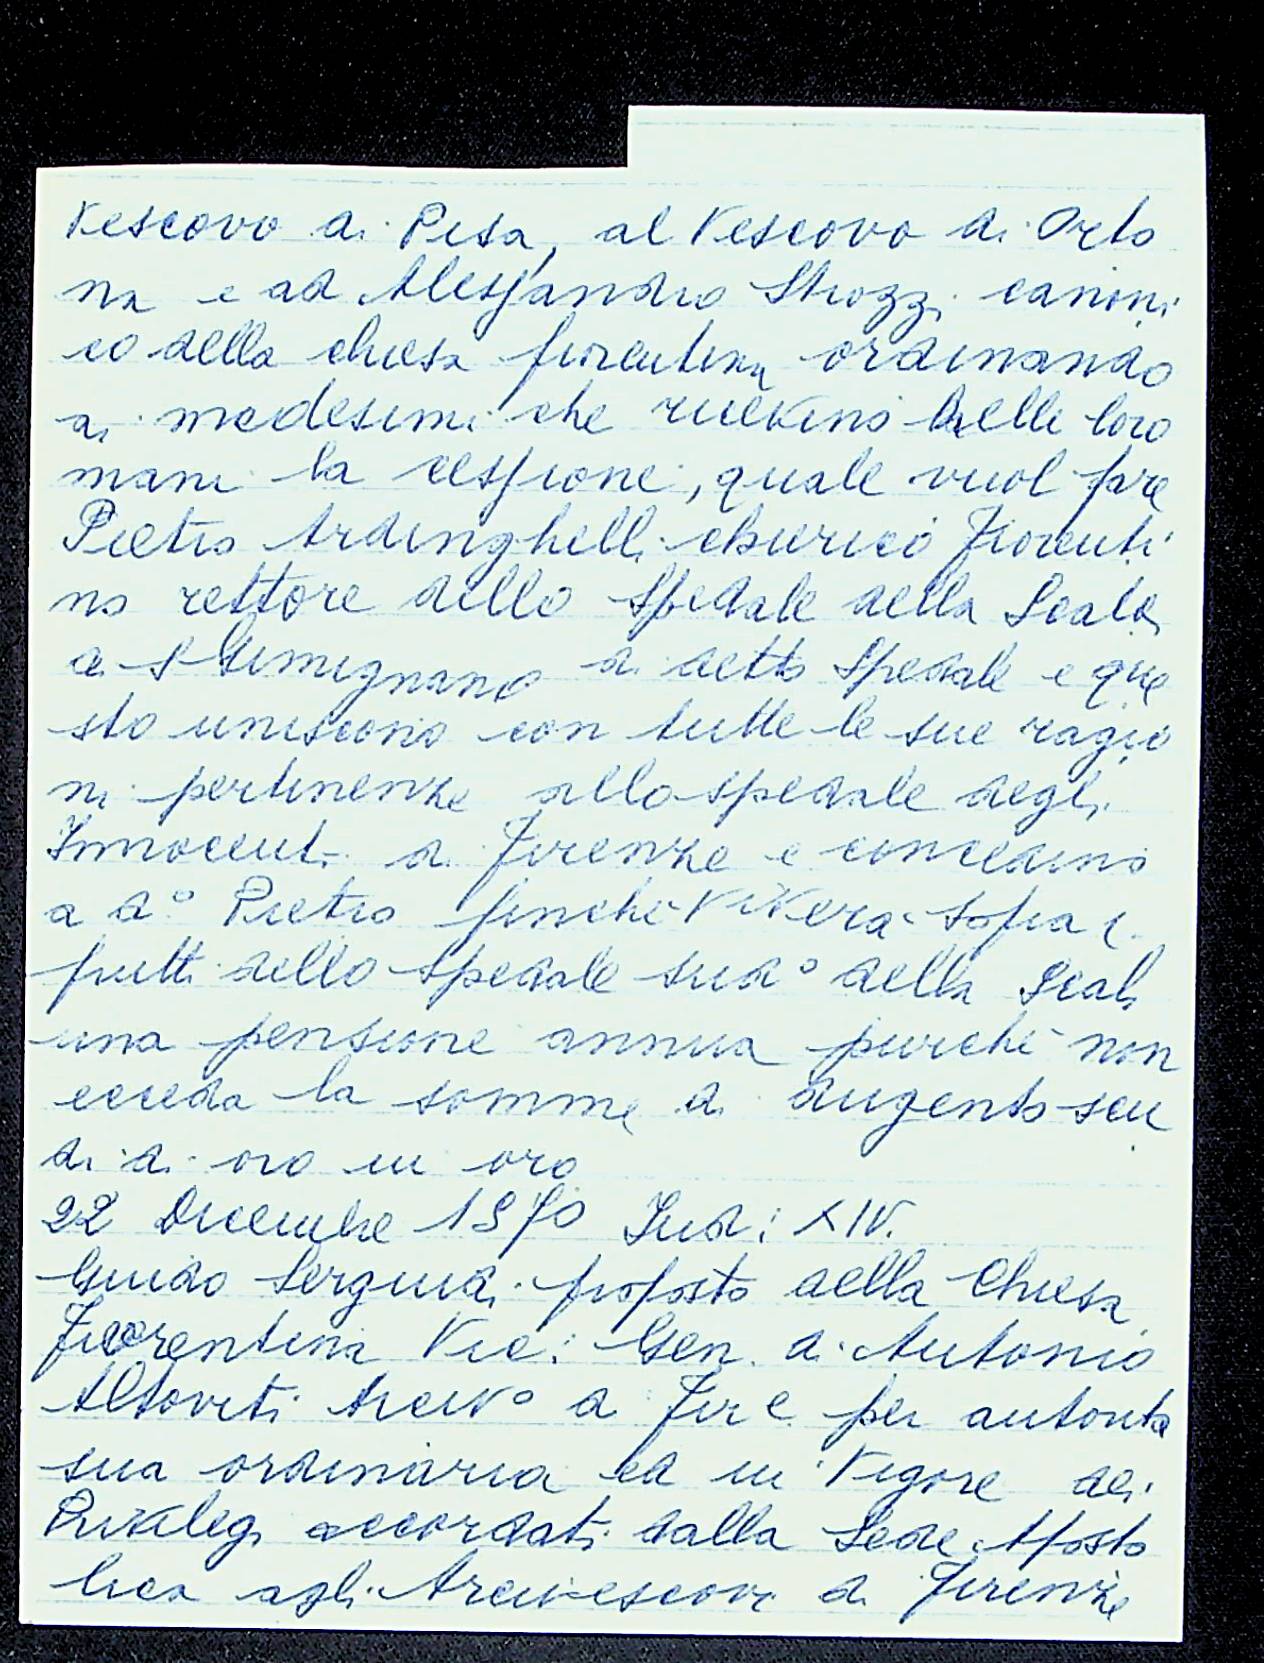 Vescovo di Pisa, al Vescovo di Orto
na e ad Alessandro Strozzi canoni
co della chiesa fiorentina ordinando
ai medesimi che ricevino nelle loro
mani la cessione, quale vuol fare
Pietro Ardinghelli chierico Fiorenti
no rettore dello Spedale della Scala
a S Gimignano di detto Spedale e que
sto uniscono con tutte le sue ragio
ni pertinenze allo spedale degli
Innocenti di Firenze e concedino
a do Pietro finche vivera sopra i
frutti dello spedale sudo della Scala
una pensione annua purche non
ecceda la somma di dugento scu
di di oro in oro
22 Dicembre 1570 Ind: XIV.
Guido Serguidi proposto della Chiesa
Fiorentina Vic: Gen. di Antonio
Altoviti Arcivo di Fire per autorita
sua ordinaria ed in Vigore dei
Privilegi accordati dalla Sede Aposto
lica agli Arcivescovi di Firenze